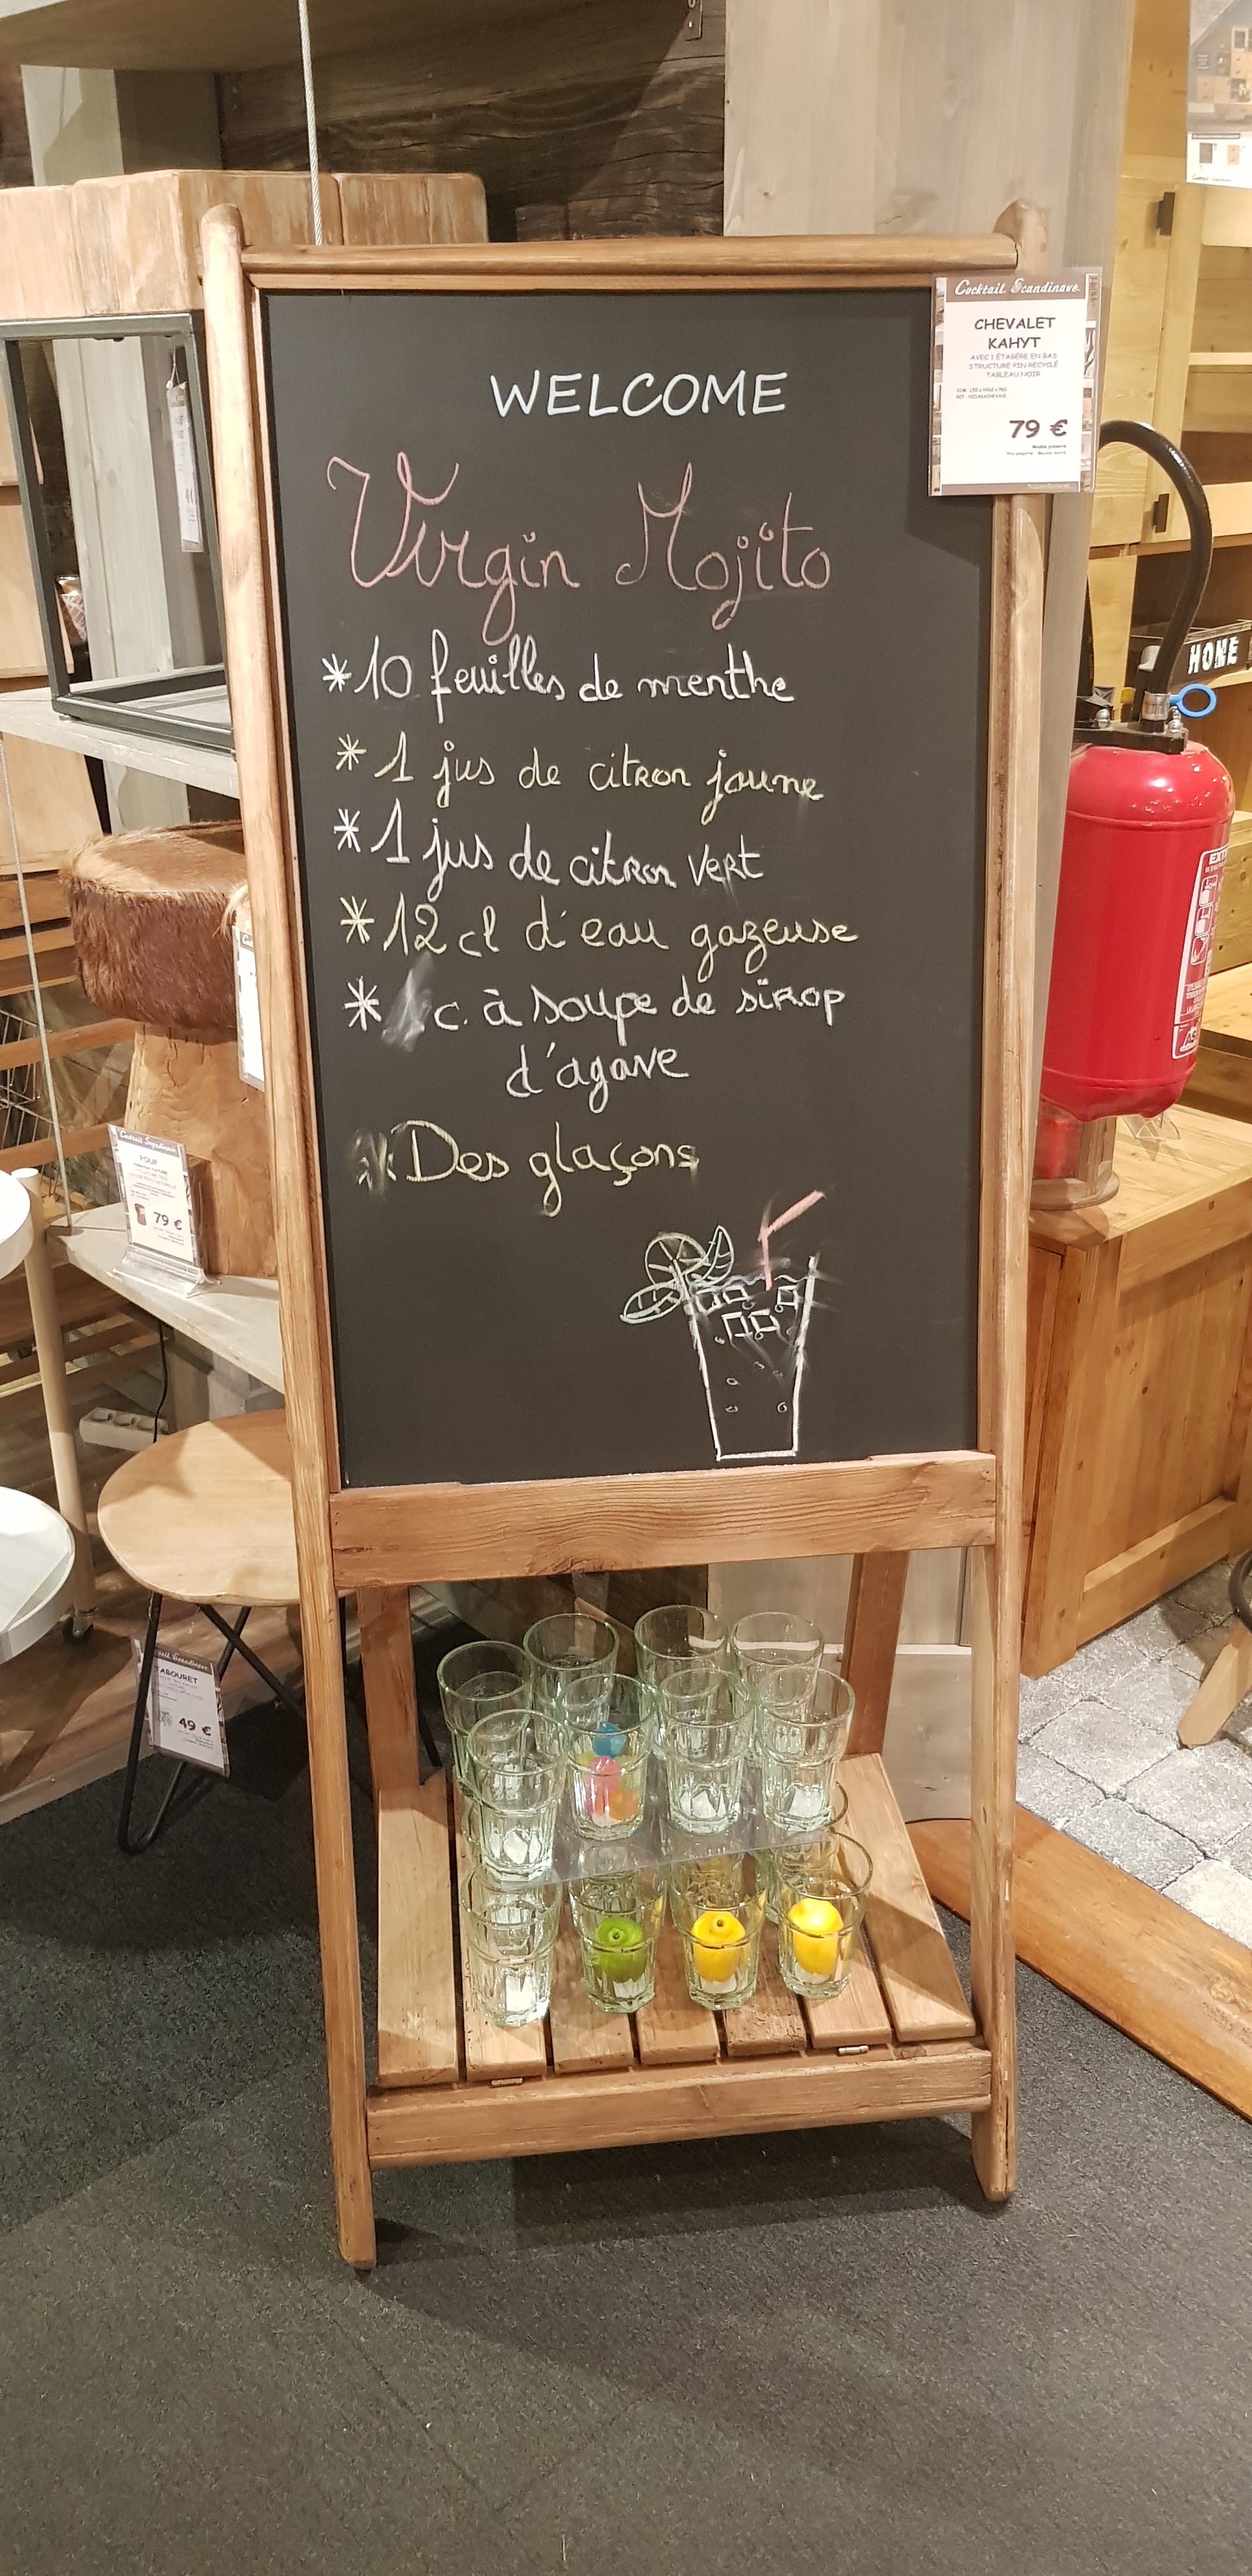 WELCOME
Virgin Mojito
*10 feuilles de menthe
* 1 jus de citron jaune
* 1 jus de citron vert
* 12 cl d'eau gazeuse
* c. à soupe de sirop
d'agave
* Des glaçons
Cocktail Scandinave
CHEVALET
KAHYT
AVEC 1 ÉTAGÈRE EN BAS
STRUCTURE PIN RECYCLÉ
TABLEAU NOIR
79 €
HOME
Cocktail Scandinave
POUF
79 €
Scandinave
TABOURET
49 €